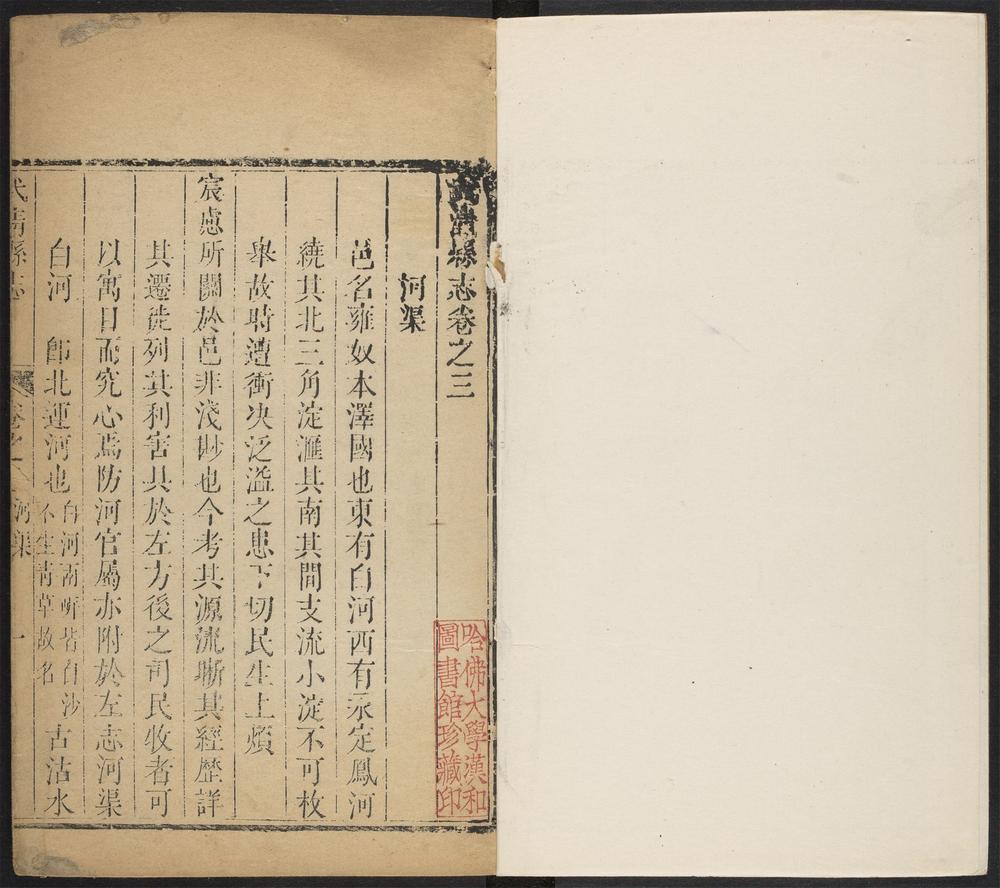 武清縣志卷之三
河渠
邑名雍奴本澤國也東有白河西有永定鳳河
繞其北三角淀滙其南其間支流小淀不可枚
舉故時遭衝決泛溢之患下切民生上煩
宸慮所關於邑非淺尠也今考其源流晰其經歷詳
其遷徙列其利害具於左方後之司民牧者可
以寓目而究心焉防河官屬亦附於左志河渠
白河 卽北運河也白河兩岍皆白沙不生靑草故名古沽水
武清縣志 卷之 河渠 一
哈佛大學漢和圖書館珍藏印